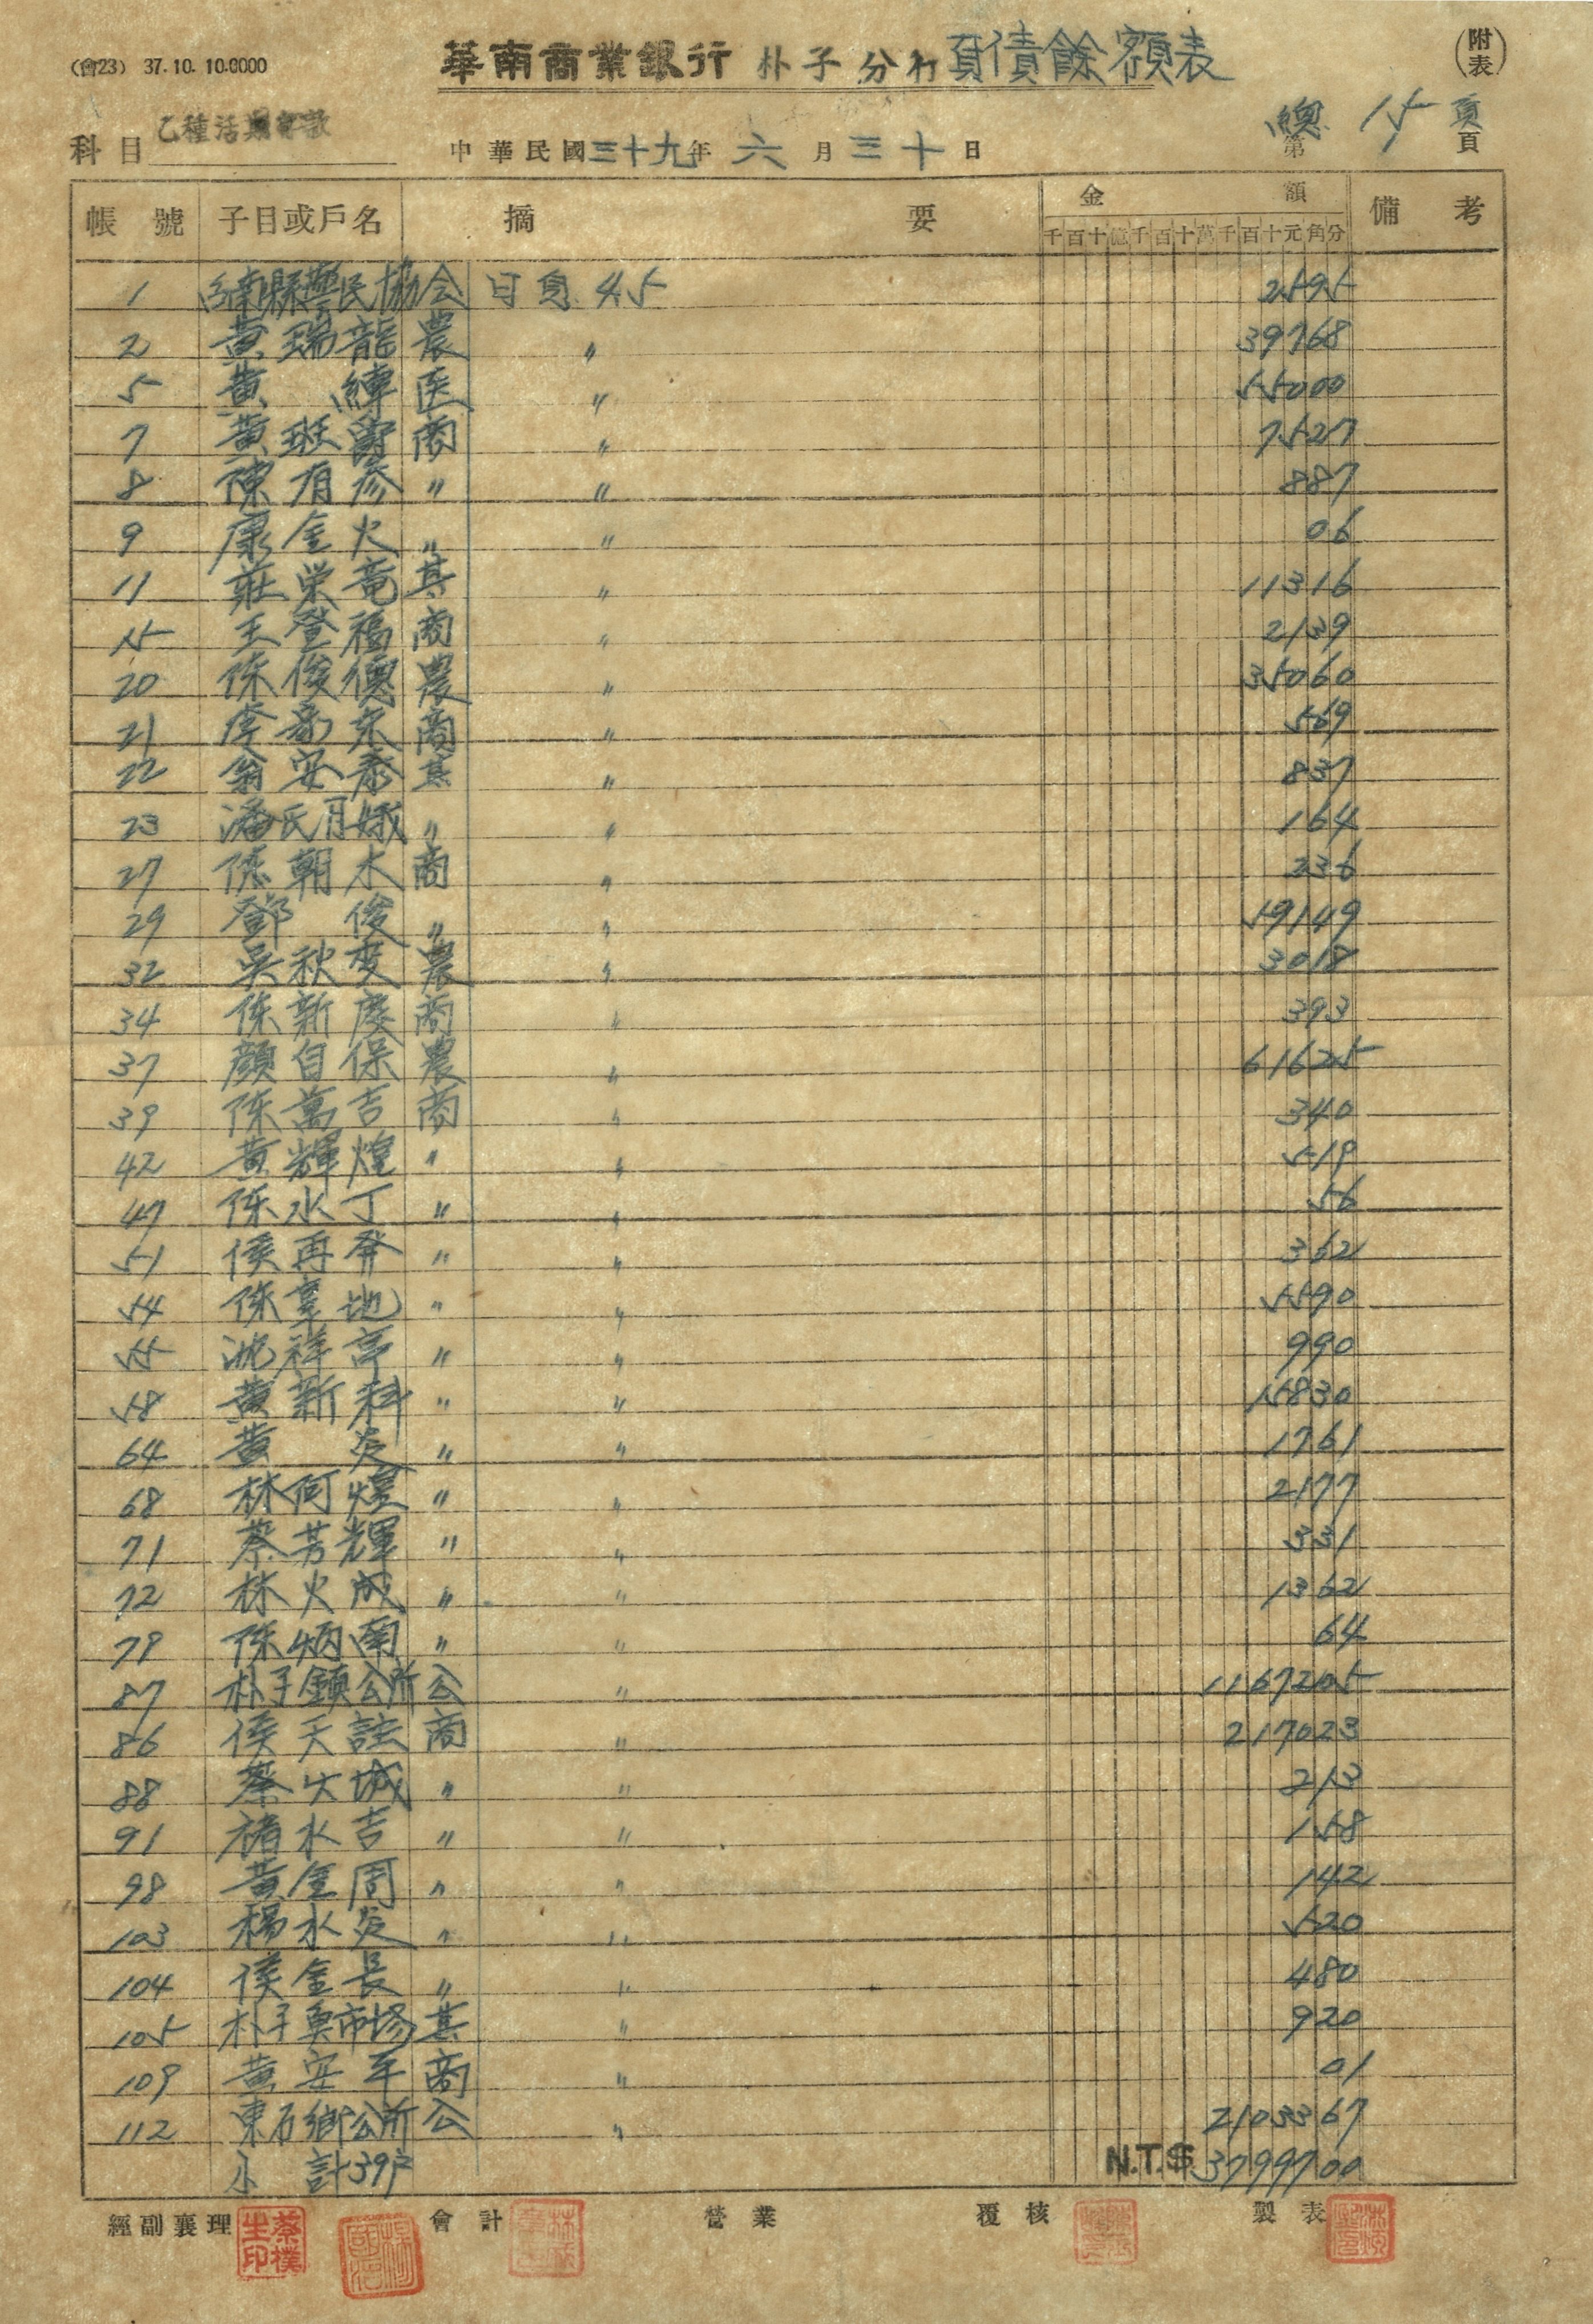 (會23) 37.10.10.0000
華南商業銀行 朴子分行 負債餘額表
(附表)
科目 乙種活期存款
中華民國三十九年六月三十日
總15頁
第 頁
帳號 子目或戶名 摘要 金額 備考
千百十億千百十萬千百十元角分
1 台南縣農民協会 日息 45 2595
2 黃瑞龍 農 〃 39768
5 黃 緯 医 〃 55000
7 黃班爵 商 〃 7527
8 陳有彥 〃 〃 887
9 康金火 〃 〃 06
11 莊栄竜 其 〃 11316
15 王登福 商 〃 2139
20 侯俊德 農 〃 35060
21 李 商 〃 569
22 翁安泰 其 〃 837
23 潘氏月娥 〃 〃 164
27 朝木 商 〃 236
29 鄧 俊 〃 〃 59149
32 吳秋 農 〃 3018
34 新慶 商 〃 393
37 顏自保 農 〃 61625
39 萬吉 商 〃 340
42 黃輝煌 〃 〃 519
47 水丁 〃 〃 56
51 侯再発 〃 〃 362
54 地 〃 〃 5590
55 沈祥亭 〃 〃 990
58 黃新科 〃 〃 15830
64 黃 炎 〃 〃 1761
68 林何煌 〃 〃 2177
71 蔡芳輝 〃 〃 331
72 林火成 〃 〃 1362
79 炳南 〃 〃 64
87 朴子鎮公所 公 〃 1167205
86 侯天註 商 〃 217023
88 蔡火城 〃 〃 213
91 楮水吉 〃 〃 158
98 黃金周 〃 〃 142
103 楊水炎 〃 〃 520
104 侯金長 〃 〃 480
105 朴子魚市場 其 〃 920
109 黃安平 商 〃 01
112 東石鄉公所 公 〃 2103367
小計39戶 N.T.$ 3799700
經副襄理 會計 營業 覆核 製表
蔡樸生印